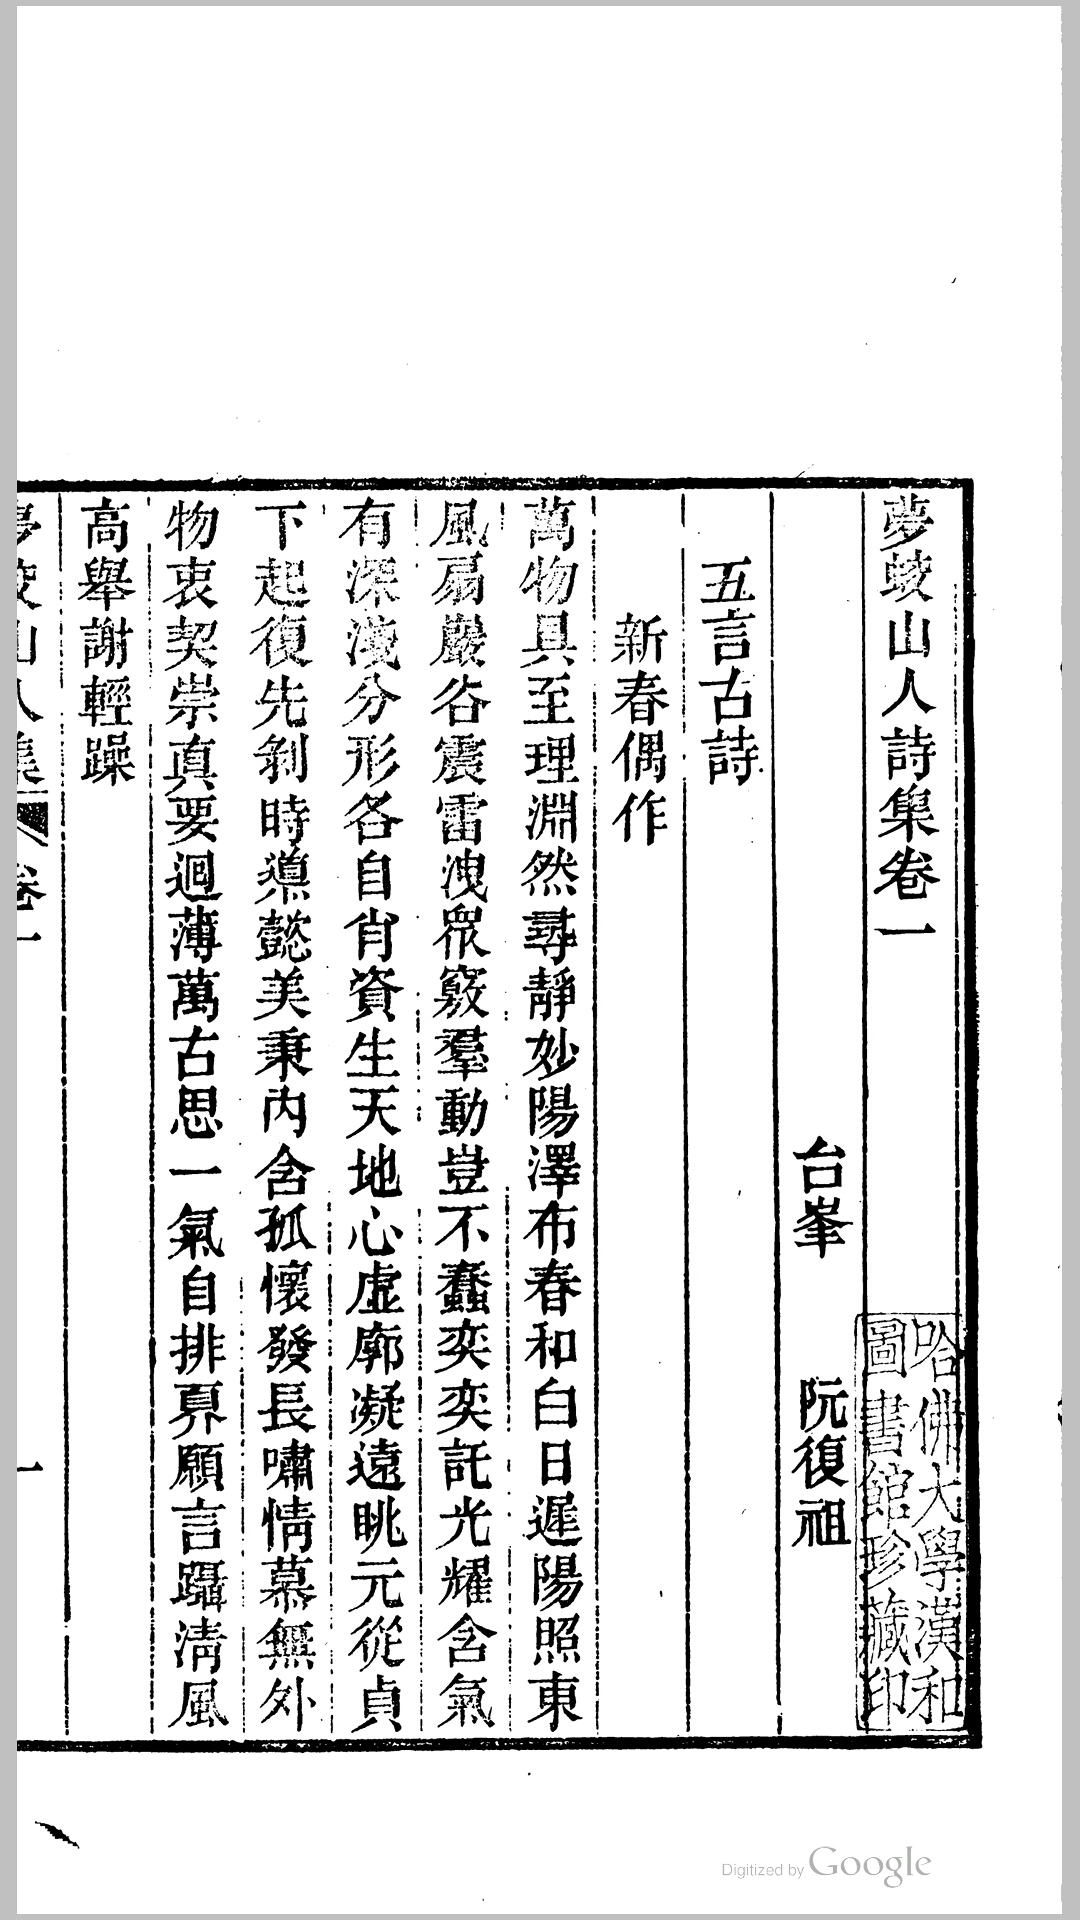 夢蛟山人詩集卷一
台峯　阮復祖
五言古詩
新春偶作
萬物具至理淵然尋靜妙陽澤布春和白日遲陽照東
風扇巖谷震雷洩眾竅羣動豈不蠢奕奕託光耀含氣
有深淺分形各自肖資生天地心虛廓凝遠眺元從貞
下起復先剝時凛懿美秉内含孤懷發長嘯情慕無外
物衷契崇真要迴薄萬古思一氣自排奡願言躡清風
高舉謝輕躁
夢蛟山人集
卷一
一
哈佛大學漢和
圖書館珍藏印
Digitized by Google